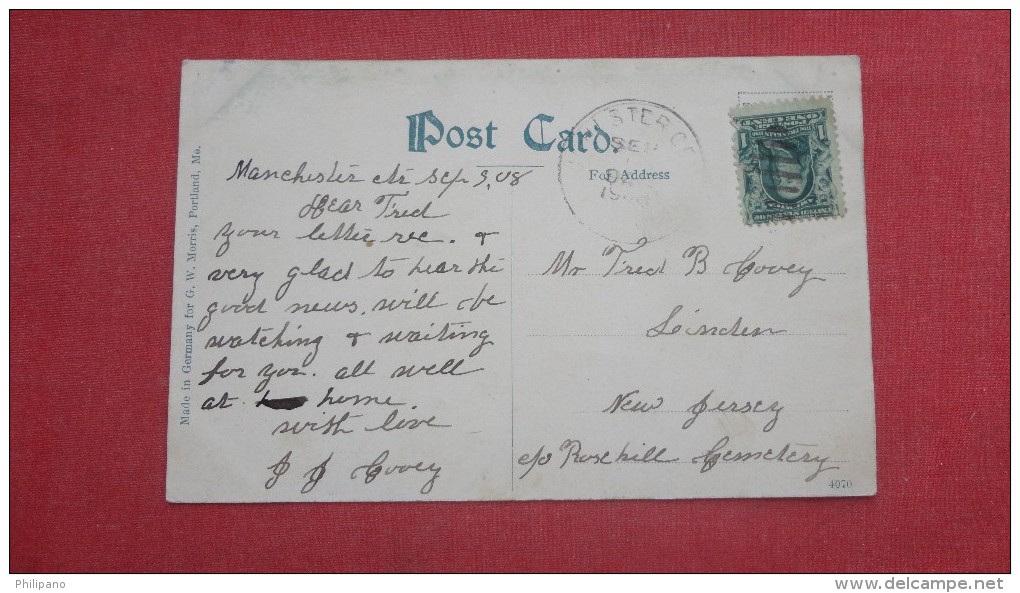 Post Card.
For Address
Made in Germany for G. W. Morris, Portland, Me.
Manchester Ctr Sep 3, 08
Dear Fred
your letter rec. &
very glad to hear the
good news. will be
watching & waiting
for you. all well
at home
with love
J J Covey
STER
SEP
1908
1
1
Mr Fred B Covey
Linden
New Jersey
c/o Rosehill Cemetery
4070
Philipano
www.delcampe.net